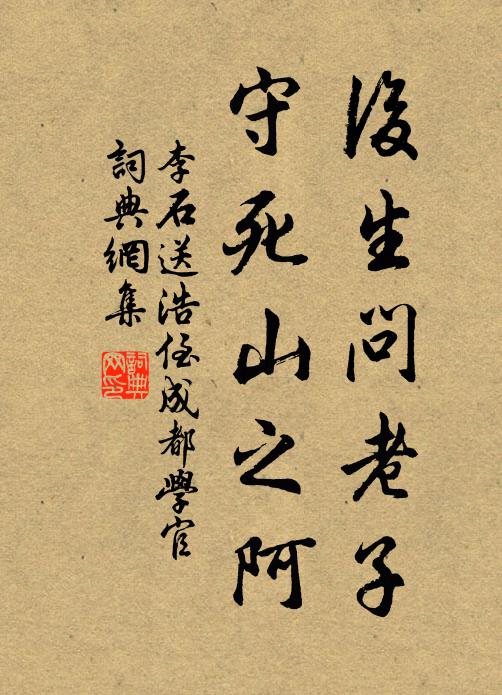 後生問老子
守死山之阿
李石送浩侄成都學官
詞典網集
詞典
网印